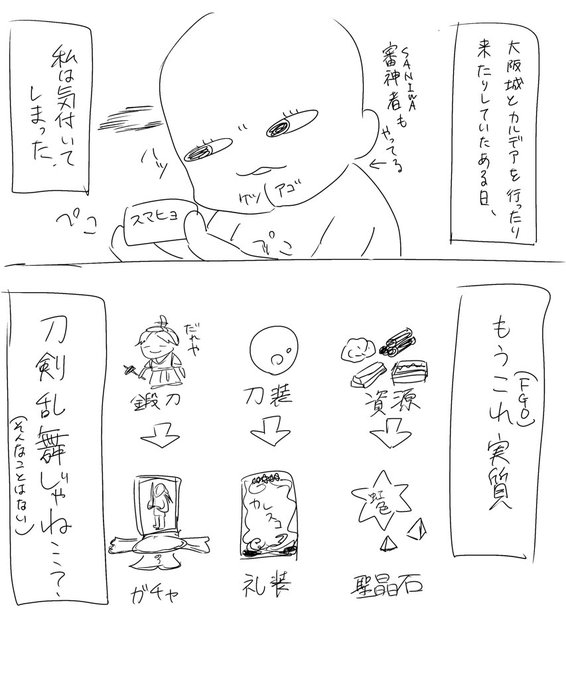 大阪城とカルデアを行ったり
来たりしていたある日、
SANIWA
審神者も
やってる
私は気付いて
しまった、
ハッ
ケツ
アゴ
スマヒョ
ぺこ
ぺこ
もうこれ実質
(FGO)
資源
刀装
鍛刀
だれや
虹色
聖晶石
礼装
ガチャ
刀剣乱舞じゃね…?、
(そんなことはない)